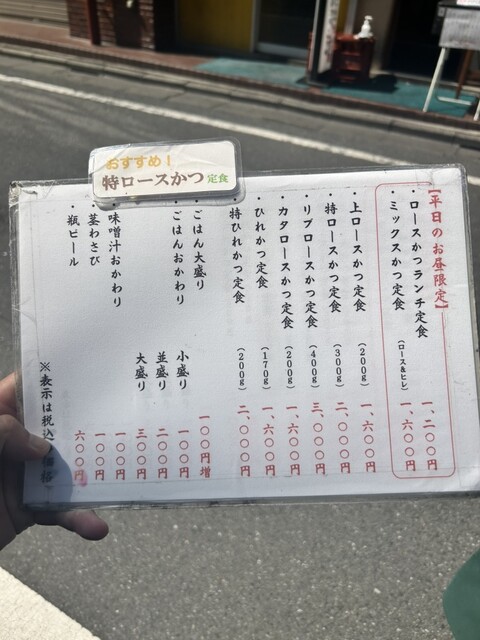 おすすめ！
特ロースかつ 定食
【平日のお昼限定】
・ロースかつランチ定食 一、二〇〇円
・ミックスかつ定食 （ロース&ヒレ） 一、六〇〇円
・上ロースかつ定食 （200g） 一、六〇〇円
・特ロースかつ定食 （300g） 二、〇〇〇円
・リブロースかつ定食 （400g） 三、〇〇〇円
・カタロースかつ定食 （200g） 一、六〇〇円
・ひれかつ定食 （170g） 一、六〇〇円
・特ひれかつ定食 （200g） 二、〇〇〇円
・ごはん大盛り 一〇〇円増
・ごはんおかわり 小盛り 一〇〇円
並盛り 二〇〇円
大盛り 三〇〇円
・味噌汁おかわり 一〇〇円
・茎わさび 一〇〇円
・瓶ビール 六〇〇円
※表示は税込み価格